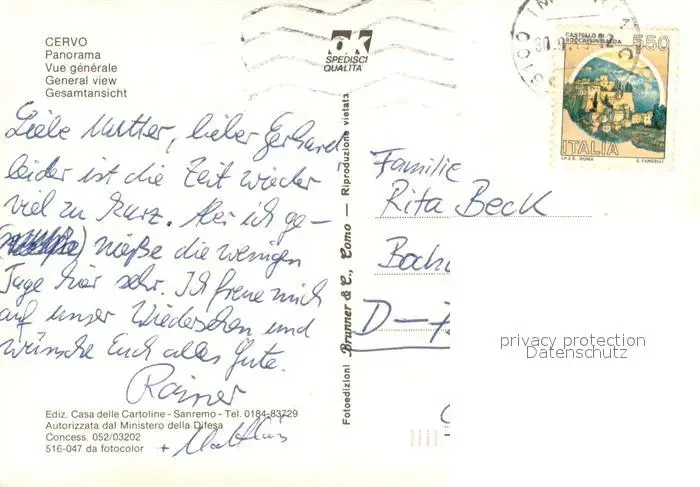 CERVO
Panorama
Vue générale
General view
Gesamtansicht
OK
SPEDISCI
QUALITÀ
CASTELLO DI
ROCCASINIBALDA
550
ITALIA
I.P.Z.S. - ROMA
E. VANGELLI
Liebe Mutter, lieber Gerhard
leider ist die Zeit wieder
viel zu kurz. Aber ich ge-
nieße die wenigen
Tage hier sehr. Ich freue mich
auf unser Wiedersehen und
wünsche Euch alles Gute.
Rainer
+ Matthias
Fotoedizioni Brunner & C., Como — Riproduzione vietata
Familie
Rita Beck
D-7
privacy protection
Datenschutz
Ediz. Casa delle Cartoline - Sanremo - Tel. 0184-83729
Autorizzata dal Ministero della Difesa
Concess. 052/03202
516-047 da fotocolor